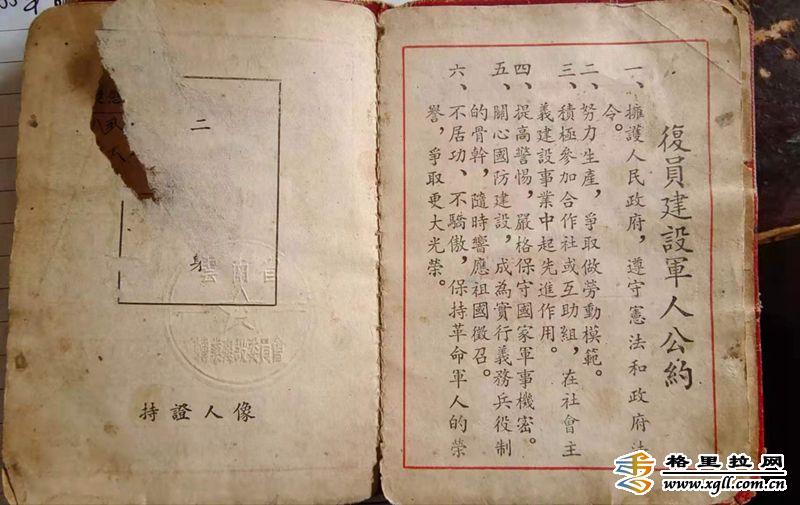 復員建設軍人公約
一、擁護人民政府，遵守憲法和政府法
令。
二、努力生產，爭取做勞動模範。
三、積極參加合作社或互助組，在社會主
義建設事業中起先進作用。
四、提高警惕，嚴格保守國家軍事機密。
五、關心國防建設，成為實行義務兵役制
的骨幹，隨時響應祖國徵召。
六、不居功、不驕傲，保持革命軍人的榮
譽，爭取更大光榮。
二
身
雲南省
建設委員會
持證人像
格里拉网
www.xgll.com.cn